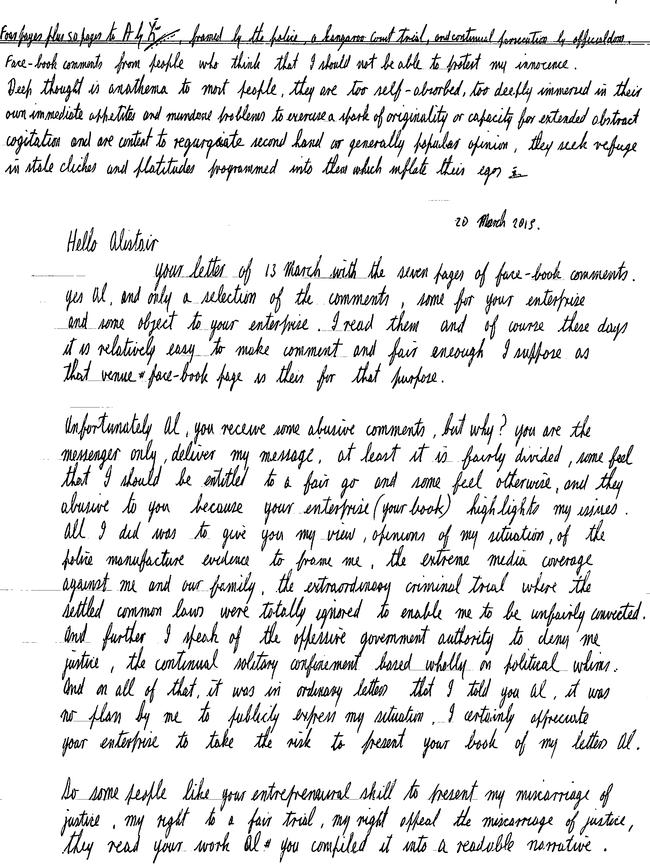 Four pages plus 50 pages to A by K , framed by the police, a kangaroo court trial, and continual persecution by officialdom.
Face-book comments from people who think that I should not be able to protest my innocence.
Deep thought is anathema to most people, they are too self-absorbed, too deeply immersed in their
own immediate appetites and mundane problems to exercise a spark of originality or capacity for extended abstract
cogitation and are content to regurgitate second hand or generally popular opinion, they seek refuge
in stale cliches and platitudes programmed into them which inflate their egos
20 March 2015.
Hello Alistair
your letter of 13 March with the seven pages of face-book comments.
yes Al, and only a selection of the comments, some for your enterprise
and some object to your enterprise. I read them and of course these days
it is relatively easy to make comment and fair eneough I suppose as
that venue * face-book page is their for that purpose.
Unfortunately Al, you receive some abusive comments, but why? you are the
messenger only, deliver my message, at least it is fairly divided, some feel
that I should be entitled to a fair go and some feel otherwise, and they
abusive to you because your enterprise (your book) highlights my issues.
All I did was to give you my view, opinions of my situation, of the
police manufacture evidence to frame me, the extreme media coverage
against me and our family, the extraordinary criminal trial where the
settled common laws were totally ignored to enable me to be unfairly convicted.
And further I speak of the oppressive government authority to deny me
justice, the continual solitary confinement based wholly on political whims.
And on all of that, it was in ordinary letters that I told you Al, it was
no plan by me to publicly express my situation. I certainly appreciate
your enterprise to take the risk to present your book of my letters Al.
So some people like your entrepreneural skill to present my miscarriage of
justice, my right to a fair trial, my right appeal the miscarriage of justice,
they read your work Al * you compiled it into a readable narrative.